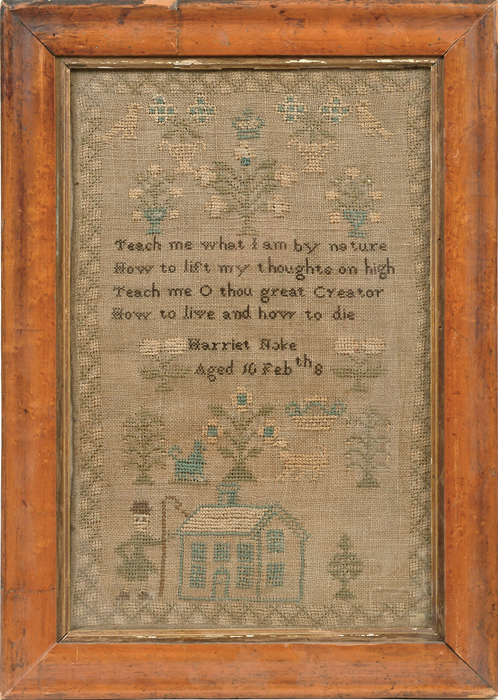 Teach me what I am by nature
How to lift my thoughts on high
Teach me O thou great Creator
How to live and how to die
Harriet Noke
Aged 10 Feb th 8